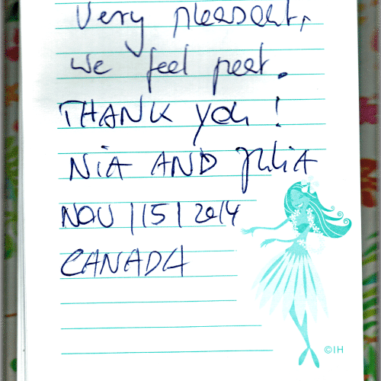 Very pleasant,
we feel great.
THANK you!
NiA AND Julia
NOV | 15 | 2014
CANADA
©IH